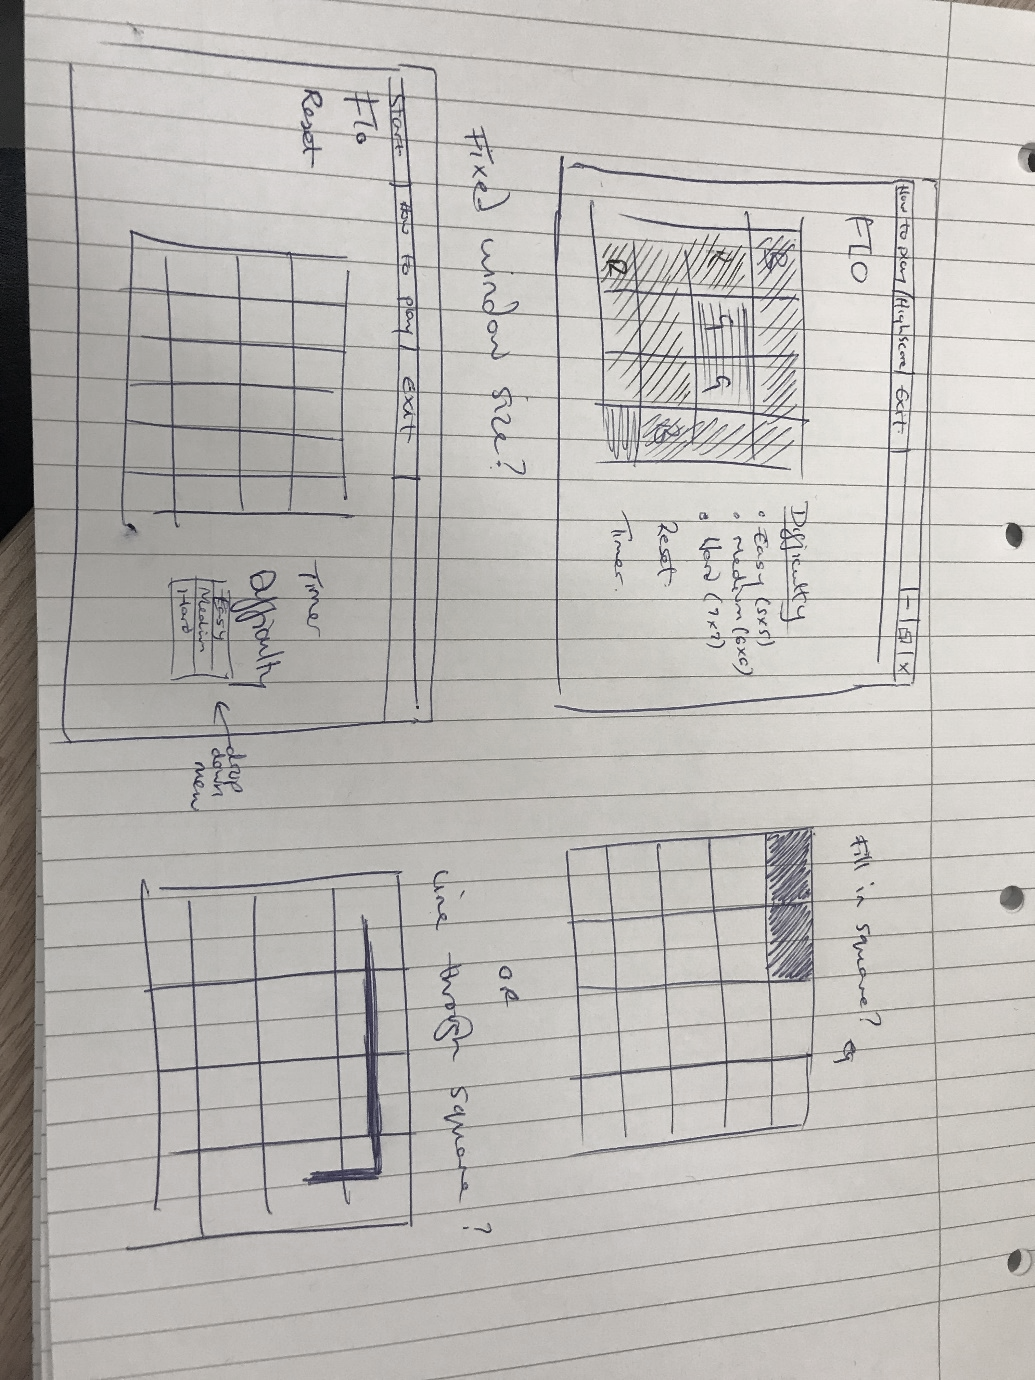 How to play / Highscore / Exit
- X
Flo
B
Y
G G
R
B
Difficulty
• Easy (5x5)
• Medium (6x6)
• Hard (7x7)
Reset
Timer
Fixed window size?
Start / How to play / Exit
Flo
Reset
Timer
Difficulty
Easy
Medium
Hard
drop
down
menu
Fill in square?
OR
Line through square?